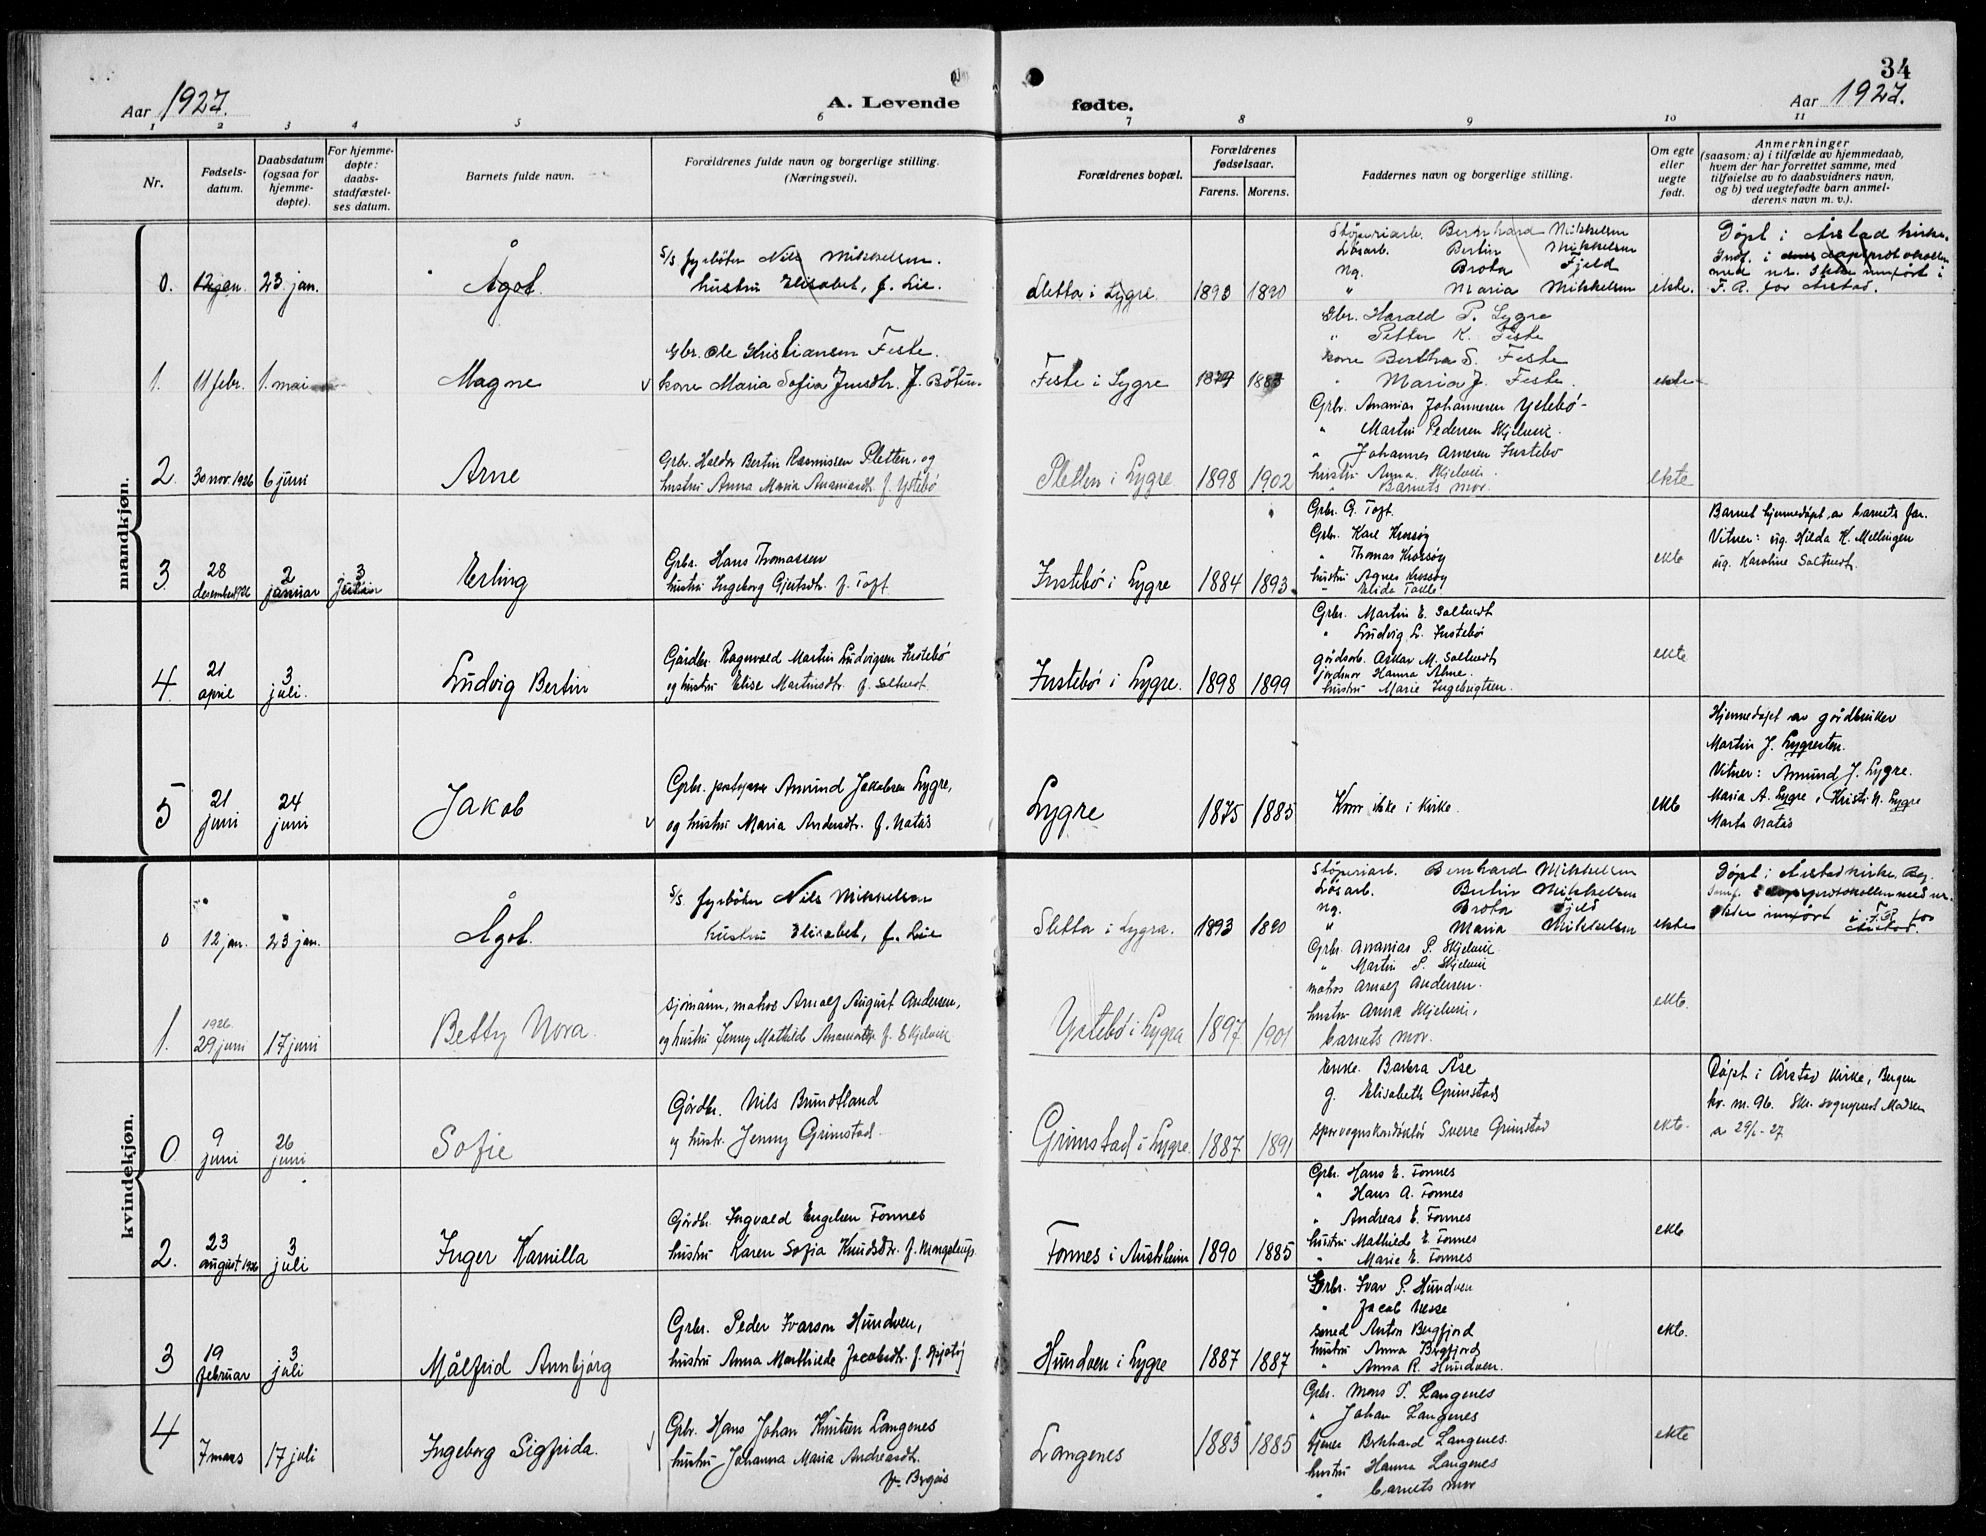 34
Aar 1927.
A. Levende fødte.
Aar 1927.
1 2 3 4 5 6 7 8 9 10 11
Nr.
Fødsels-
datum.
Daabsdatum
(ogsaa for
hjemme-
døpte).
For hjemme-
døpte:
daabs-
stadfæstel-
ses datum.
Barnets fulde navn.
Forældrenes fulde navn og borgerlige stilling.
(Næringsvei).
Forældrenes bopæl.
Forældrenes
fødselsaar.
Farens. Morens.
Faddernes navn og borgerlige stilling.
Om egte
eller
uegte
født.
Anmerkninger
(saasom: a) i tilfælde av hjemmedaab,
hvem der har forrettet samme, med
tilføielse av to daabsvidners navn,
og b) ved uegtefødte barn anmel-
derens navn m. v.).
mandkjøn.
0. 12 jan. 23. jan. Ågot.
s/s fyrbøter Nils Mikkelsen.
hustru Elisabet, f. Lie.
Sletta i Lygre. 1893 1890
Støperiarb. Bernhard Mikkelsen
Løsarb. Bertin Mikkelsen
Ug. Brota Fjeld
" Maria Mikkelsen
ekte.
Døpt i Årstad kirke.
F. R. for Årstad.
1. 11 febr. 1. mai Magne
Gbr. Ole Kristiansen Feste.
kone Maria Sofia Jensdtr. f. Bøtun.
Feste i Lygre 1879 1883
Gbr. Harald P. Lygre
" Petter K. Feste
kone Bertha S. Feste
" Maria J. Feste.
ekte
2. 30 nov. 1926 6 juni Arne
Grbr. Haldor Bertin Rasmussen Sletten, og
hustru Anna Maria Ananiasdt. f. Ystebø
Sletten i Lygre 1898 1902
Grbr. Ananias Johannesen Ystebø
" Martin Pedersen Skjelvik.
" Johannes Arnesen Justebø
hustru Anna Skjelvik.
" Barnets mor.
ekte
3. 28 desember 1926 2 januar 3 juli Erling
Grbr. Hans Thomassen
hustru Ingeborg Gjertsdtr. f. Toft
Justebø i Lygre 1884 1893.
Grbr. G. Toft.
Grbr. Karl Krossøy
" Thomas Krossøy
hustru Agnes Krossøy
" Elida Takle
ekte
Barnet hjemmedøpt av barnets far.
Vitner: ug. Hilda K. Mellingen
ug. Karoline Saltvedt.
4. 21 april 3 juli. Ludvig Bertin
Gårdbr. Ragnvald Martin Ludvigsen Justebø
og hustru Elise Martinsdtr. f. Saltvedt.
Justebø i Lygre. 1898 1899
Grbr. Martin E. Saltvedt
" Ludvig L. Justebø
gårdsarb. Askar M. Saltvedt
jordmor Hanna Alme.
hustru Marie Ingebrigtsen.
ekte
5 21 juni 24 juni Jakob
Grbr. postopner Amund Jakobsen Lygre,
og hustru Maria Andersdtr. f. Natås
Lygre 1875 1885
Kom ikke i kirke.
ekte
Hjemmedøpt av gårdbruker
Martin J. Lygresten.
Vitner: Amund J. Lygre.
Maria A. Lygre, Kristi N. Lygre
Marta Natås
kvindekjøn.
0 12 jan. 23 jan. Ågot.
s/s. fyrbøter Nils Mikkelsen
hustru Elisabet, f. Lie
Sletta i Lygra. 1893 1890
Støperiarb. Bernhard Mikkelsen
Løsarb. Bertin Mikkelsen
Ug. Brota Fjeld
" Maria Mikkelsen
ekte
Døpt i Årstad kirke, Bg.
innført i F.R. for
Årstad.
1. 1926. 29 juni 17 juni Betty Nora.
sjømann, matros Arnolf August Andersen,
og hustru Jenny Mathilde Ananiasdtr. f. Skjelvik
Ystebø i Lygra 1897 1901
Grbr. Ananias P. Skjelvik
" Martin P. Skjelvik
matros Arnolf Andersen.
hustru Anna Skjelvik,
barnets mor.
ekte.
0 9 juni 26 juni Sofie
Gårdbr. Nils Brundtland
og hustr. Jenny Grimstad.
Grimstad i Lygre. 1887 1891
Enke. Barbra Åse
g. Elisabeth Grimstad
sporvognskonduktør Sverre Grimstad
ekte.
Døpt i Årstad kirke, Bergen
kv. nr. 96. Skr. sogneprest Madsen
av 29/6-27
2. 23 august 1926 3 juli Inger Kamilla
Gårdbr. Ingvald Engelsen Fonnes
hustru Karen Sofia Knudsdtr. f. Mongstup.
Fonnes i Austrheim 1890 1885
Grbr. Hans E. Fonnes
" Hans A. Fonnes
" Andreas E. Fonnes
hustru Mathilde E. Fonnes
" Marie E. Fonnes
ekte
3 19 februar 3 juli Målfrid Annbjørg
Grbr. Peder Ivarson Hundven,
hustru Anna Marthilde Jacobsdtr.
Hundven i Lygre 1887 1887
Grbr. Ivar P. Hundven
" Jacob Nesse
smed Anton Bergfjord
hustru Anna Bergfjord
" Anna R. Hundven.
ekte.
4 7 mars 17 juli Ingeborg Sigfrida.
Grbr. Hans Johan Knutsen Langenes
hustru Johanna Maria Andreasdtr.
f. Bergås
Langenes 1883 1885
Grbr. Mons P. Langenes
" Johan Langenes
Langenes.
hustru Hanna Langenes
" barnets mor
ekte